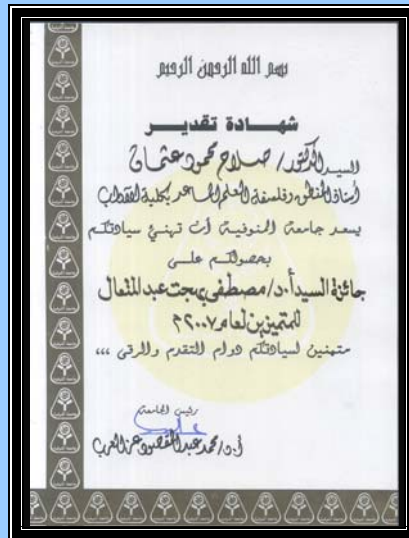 بسم الله الرحمن الرحيم
شهادة تقدير
السيد الدكتور/ صلاح محمود عثمان
أستاذ المنطق وفلسفة العلم المساعد بكلية الآداب
يسعد جامعة المنوفية أن تهنئ سيادتكم
بحصولكم على
جائزة السيد أ.د/ مصطفى بهجت عبد المتعال
للمتميزين لعام ٢٠٠٧م
متمنين لسيادتكم دوام التقدم والرقى ،،،
رئيس الجامعة
أ.د/ محمد عبد المقصود عز العرب